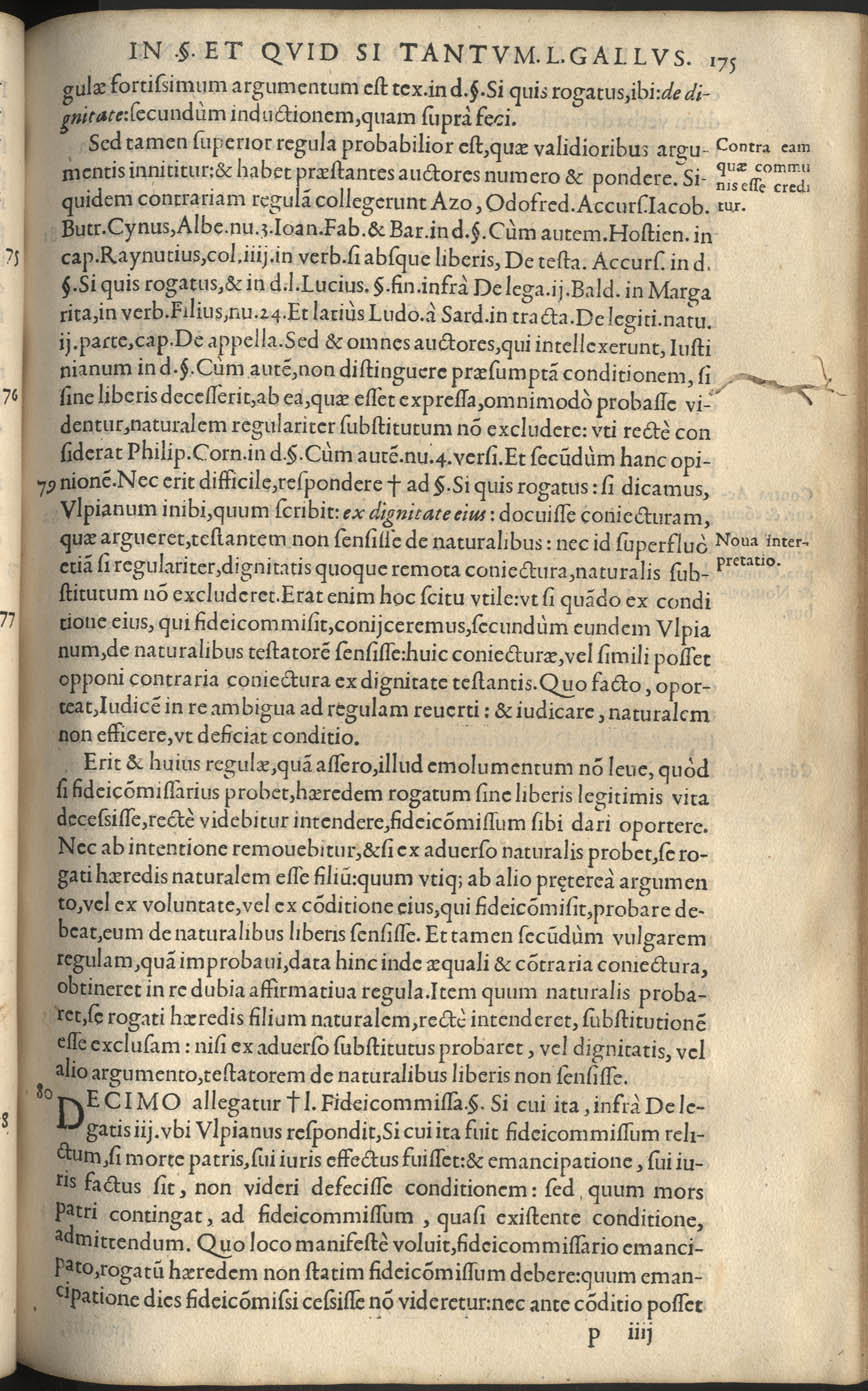 IN .§. ET QVID SI TANTVM. L. GALLVS. 175
gulæ fortiſsimum argumentum eſt tex.in d.§.Si quis rogatus,ibi:de di-
gnitate:ſecundùm inductionem,quam ſuprà feci.
Sed tamen ſuperior regula probabilior eſt,quæ validioribus argu-
mentis innititur:& habet præſtantes auctores numero & pondere. Si-
quidem contrariam regulã collegerunt Azo, Odofred.Accurſ.Iacob.
Butr.Cynus,Albe.nu.3.Ioan.Fab.& Bar.in d.§.Cùm autem.Hoſtien. in
cap.Raynutius,col.iiij.in verb.ſi abſque liberis, De teſta. Accurſ. in d.
§.Si quis rogatus,& in d.l.Lucius. §.fin.infrà De lega.ij.Bald. in Marga
rita,in verb.Filius,nu.24.Et latiùs Ludo.à Sard.in tracta.De legiti.natu.
ij.parte,cap.De appella.Sed & omnes auctores,qui intellexerunt, Iuſti
nianum in d.§.Cùm autẽ,non diſtinguere præſumptã conditionem, ſi
ſine liberis deceſſerit,ab ea,quæ eſſet expreſſa,omnimodò probaſſe vi-
dentur,naturalem regulariter ſubſtitutum nõ excludere: vti rectè con
ſiderat Philip.Corn.in d.§.Cùm autẽ.nu.4.verſi.Et ſecũdùm hanc opi-
79 nionẽ.Nec erit difficile,reſpondere † ad §.Si quis rogatus: ſi dicamus,
Vlpianum inibi,quum ſcribit: ex dignitate eius: docuiſſe coniecturam,
quæ argueret,teſtantem non ſenſiſſe de naturalibus: nec id ſuperfluè
etiã ſi regulariter,dignitatis quoque remota coniectura,naturalis ſub-
ſtitutum nõ excluderet.Erat enim hoc ſcitu vtile:vt ſi quãdo ex condi
tione eius, qui fideicommiſit,conijceremus,ſecundùm eundem Vlpia
num,de naturalibus teſtatorẽ ſenſiſſe:huic coniecturæ,vel ſimili poſſet
opponi contraria coniectura ex dignitate teſtantis.Quo facto, opor-
teat,Iudicẽ in re ambigua ad regulam reuerti: & iudicare, naturalem
non efficere,vt deficiat conditio.
Erit & huius regulæ,quã aſſero,illud emolumentum nõ leue, quòd
ſi fideicõmiſſarius probet,hæredem rogatum ſine liberis legitimis vita
deceſsiſſe,rectè videbitur intendere,fideicõmiſſum ſibi dari oportere.
Nec ab intentione remouebitur,&ſi ex aduerſo naturalis probet,ſe ro-
gati hæredis naturalem eſſe filiũ:quum vtiq; ab alio prętereà argumen
to,vel ex voluntate,vel ex cõditione eius,qui fideicõmiſit,probare de-
beat,eum de naturalibus liberis ſenſiſſe. Et tamen ſecũdùm vulgarem
regulam,quã improbaui,data hinc inde æquali & cõtraria coniectura,
obtineret in re dubia affirmatiua regula.Item quum naturalis proba-
ret,ſe rogati hæredis filium naturalem,rectè intenderet, ſubſtitutionẽ
eſſe excluſam: niſi ex aduerſo ſubſtitutus probaret, vel dignitatis, vel
alio argumento,teſtatorem de naturalibus liberis non ſenſiſſe.
80 DECIMO allegatur † l. Fideicommiſſa.§. Si cui ita, infrà De le-
gatis iij.vbi Vlpianus reſpondit,Si cui ita fuit fideicommiſſum reli-
ctum,ſi morte patris,ſui iuris effectus fuiſſet:& emancipatione, ſui iu-
ris factus ſit, non videri defeciſſe conditionem: ſed quum mors
patri contingat, ad fideicommiſſum, quaſi exiſtente conditione,
admittendum. Quo loco manifeſtè voluit,fideicommiſſario emanci-
pato,rogatũ hæredem non ſtatim fideicõmiſſum debere:quum eman-
cipatione dies fideicõmiſsi ceſsiſſe nõ videretur:nec ante cõditio poſſet
p iiij
Contra eam
quæ commu
nis eſſe credi
tur.
Noua inter-
pretatio.
75
76
77
8